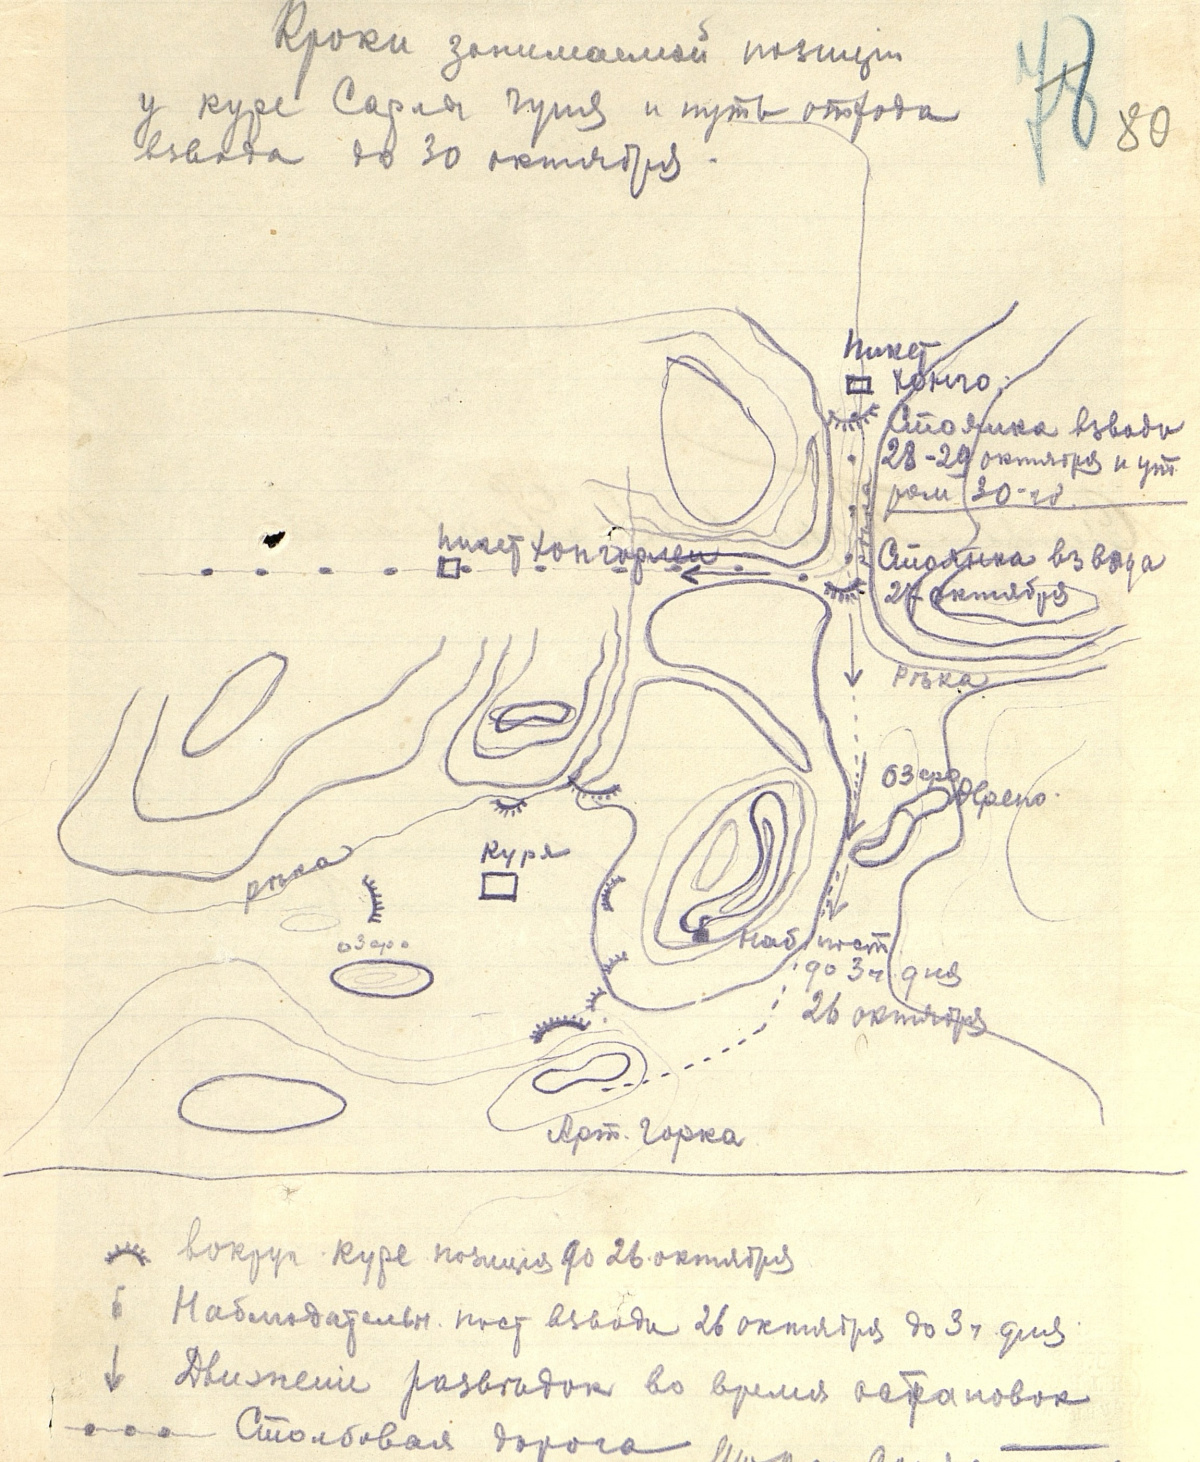 Кроки занимаемой позиціи
у куре Сарля гуня и путь отхода
взвода до 30 октября.
78
80
Пикет
Хонго.
Стоянка взвода
28-29 октября и ут
ром 30-го.
Пикет Хонгорлен
Стоянка взвода
27 октября
Рѣка
Озеро
Куря
рѣка
озеро
Наб. пост
до 3 ч дня
26 октября
Арт. Горка
вокруг куре позиція до 26 октября
Наблюдательн. пост взвода 26 октября до 3 ч дня
Движеніе развѣдок во время остановок
Столбовая дорога